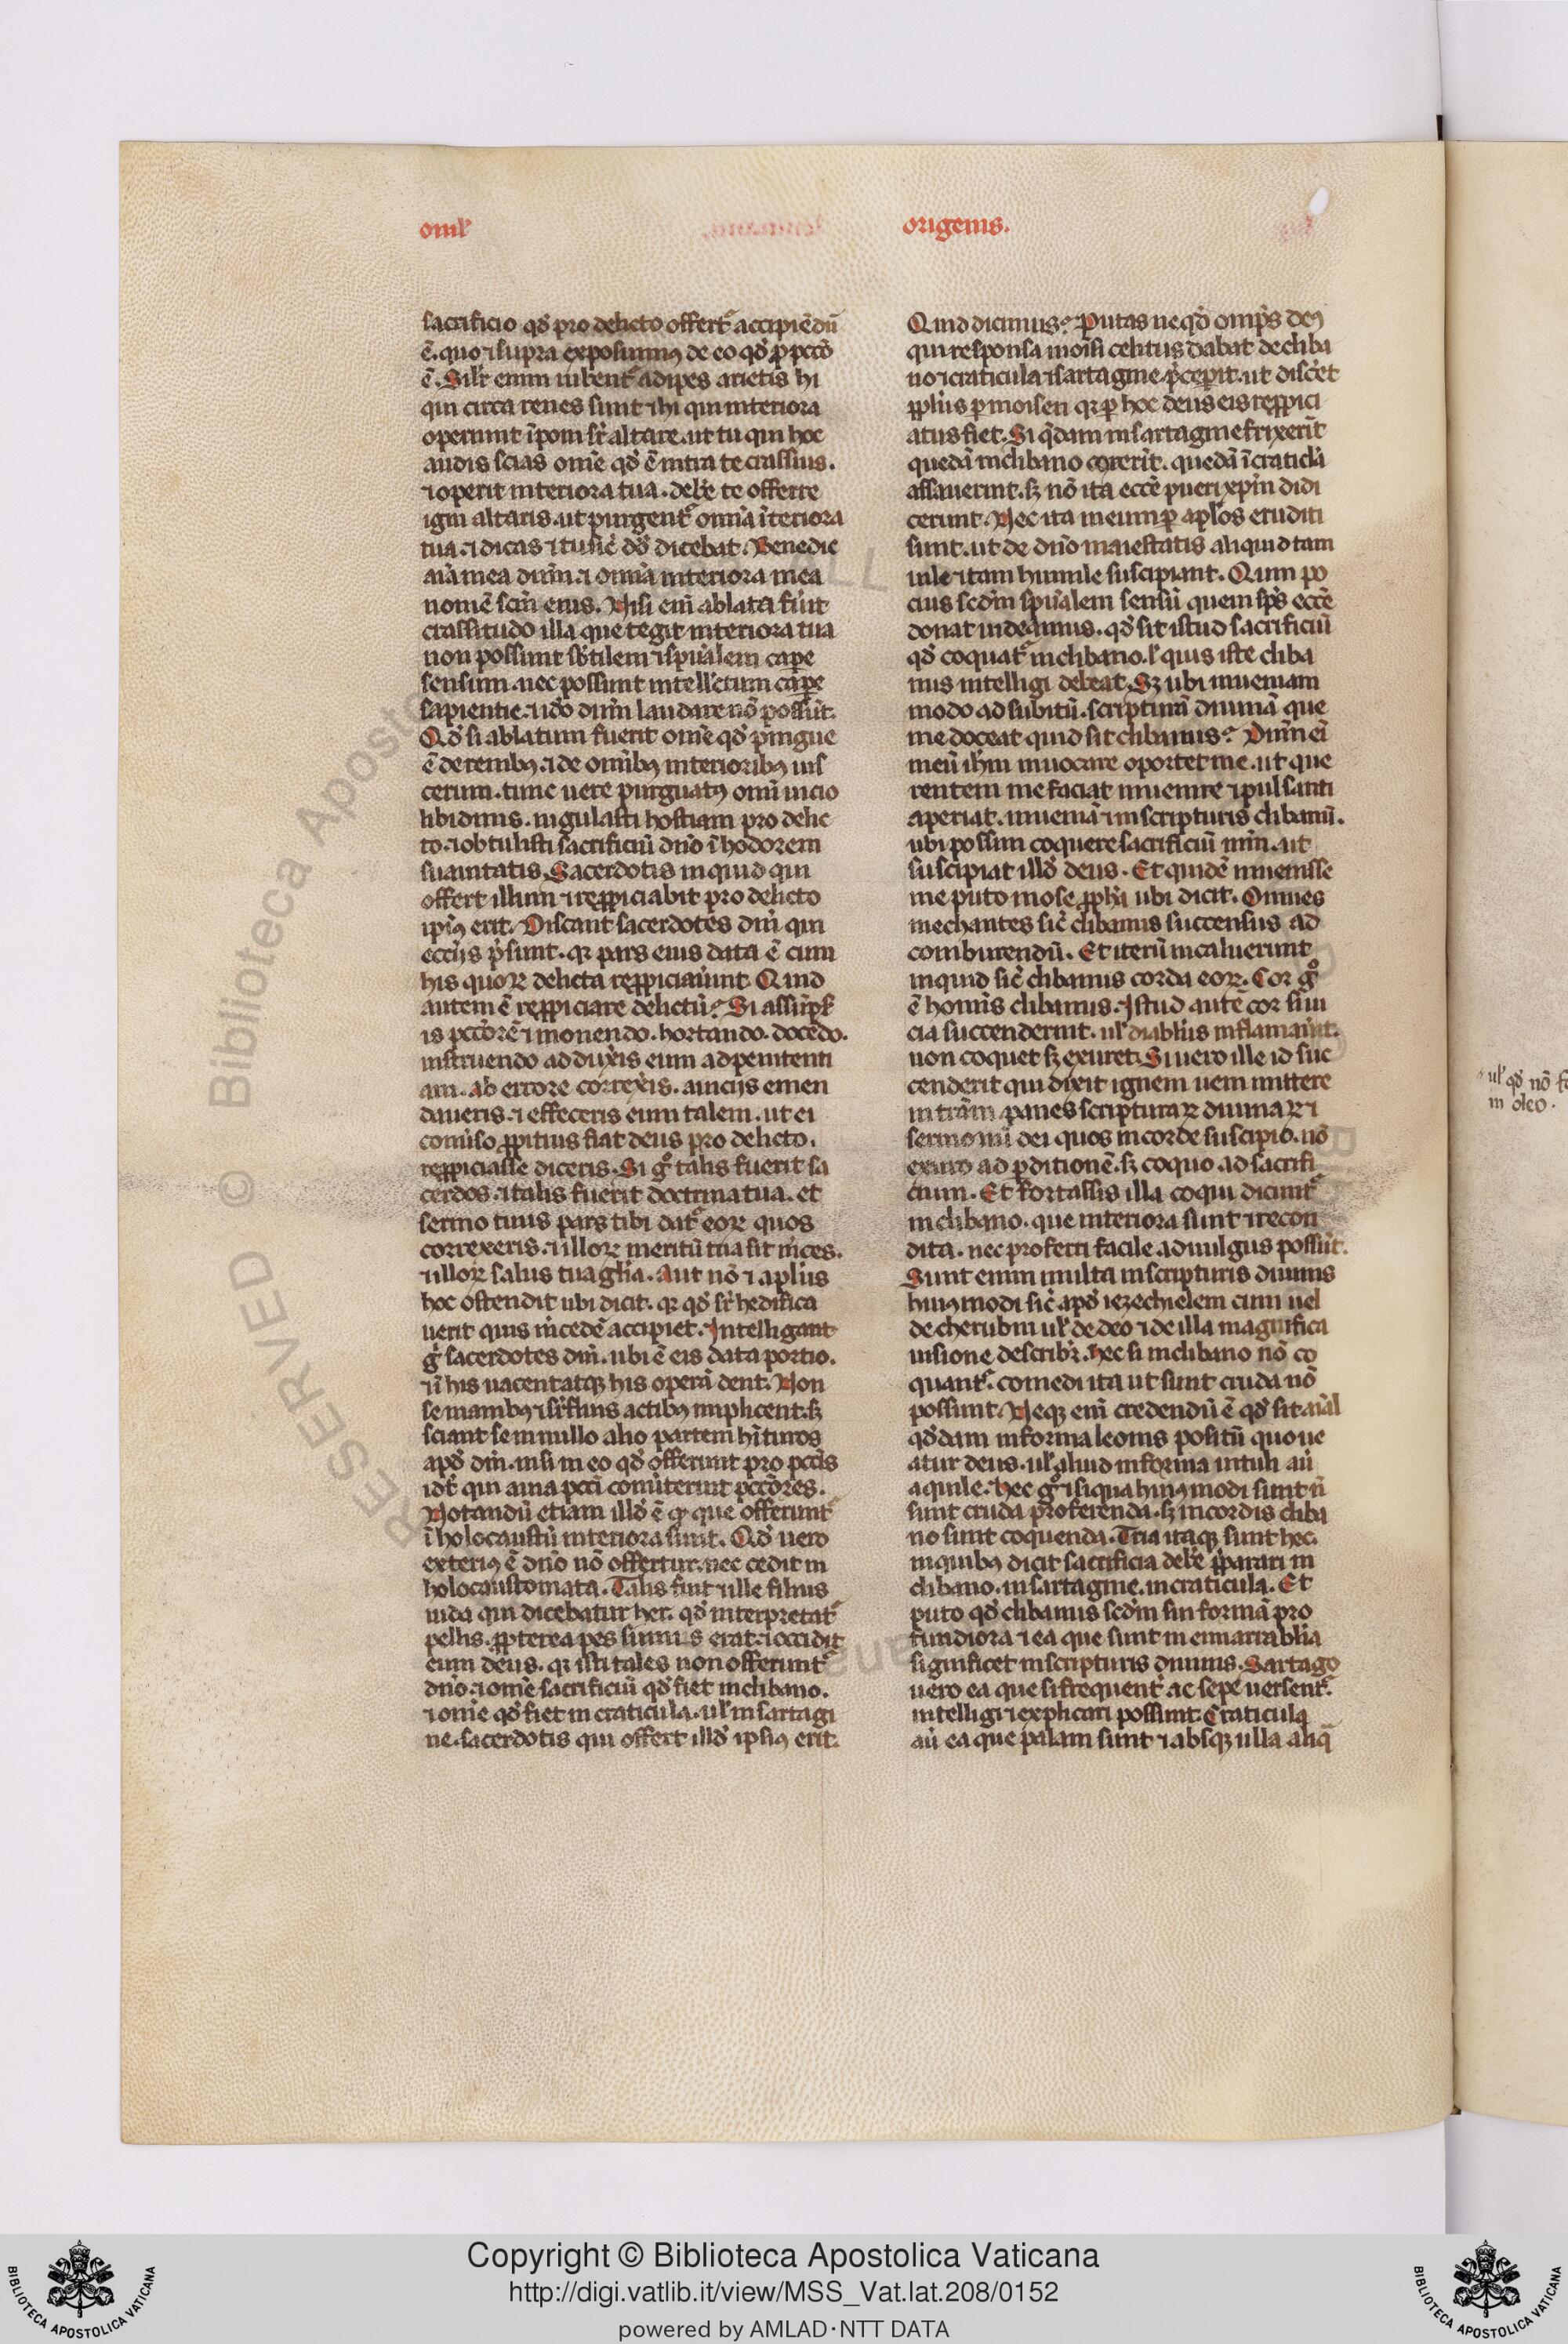 omĩl'
origenis.
sacrificio qđ pro delicto offert᷑ accipiẽdũ
ẽ. quo ⁊ supra exposuimꝰ de eo qđ ꝓ pctõ
ẽ. Silr̃ enim iubent᷑ adipes arietis hi
qui circa renes sunt ⁊ hi qui interiora
operiunt ĩponi sr̃ altare. ut tu qui hoc
audis scias om̃e qđ ẽ intra te crassius.
⁊ operit interiora tua. deb̃e te offerre
igni altaris. ut purgent᷑ om̃ia ĩteriora
tua. ⁊ dicas ⁊ tu sic̃ dđ dicebat. Benedic
aĩa mea dñm. ⁊ om̃ia interiora mea
nomẽ scm̃ eius. Nisi eñi ablata fũit
crassitudo illa que tegit interiora tua
non possunt sb̃tilem ⁊ spũalem cape
sensum. nec possunt intellc̃tum cape
sapientie. ⁊ iđo dñm laudare nõ possũt.
Qđ si ablatum fuerit om̃e qđ pingue
ẽ de renibꝰ. ⁊ de om̃ibꝰ interioribꝰ uis
cerum. tunc uere purguatꝰ omĩ uicio
libidinis. iugulasti hostiam pro delic
to. ⁊ obtulisti sacrificiũ dño ĩ hodorem
suauitatis. Sacerdotis inquid qui
offert illum ⁊ reꝓpiciabit pro delicto
ipiꝰ erit. Discant sacerdotes dñi qui
ecc̃ijs p̃sunt. qꝛ pars eius data ẽ cum
his quoꝝ delicta reꝓpiciaũint. Quid
autem ẽ reꝓpiciare delictũ? Si assũps̃
is pctõrẽ ⁊ monendo. hortando. docẽdo.
instruendo adduxis eum ad penitenti
am. ab errore correxis. auicijs emen
daueris. ⁊ effeceris eum talem. ut ei
conũso ꝓpitius fiat deus pro delicto.
reꝓpiciasse diceris. Si gͦ talis fuerit sa
cerdos. ⁊ talis fuerit doctrina tua. et
sermo tuus pars tibi dat᷑ eoꝝ quos
correxeris. ⁊ illoꝝ meritũ tua sit m̃ces.
⁊ illoꝝ salus tua gl̃ia. Aut nõ ⁊ apl̃us
hoc ostendit ubi dicit. qꝛ qđ sr̃ hedifica
uerit quis m̃cedẽ accipiet. Intelligant
g̃ sacerdotes dñi. ubi ẽ eis data portio.
⁊ ĩ his uacent atqꝫ his operã dent. Non
se inanibꝰ ⁊ sr̃fluis actibꝰ implicent. sꝫ
sciant se in nullo alio partem hĩturos
apđ dm̃. nisi in eo qđ offerunt pro pctĩs
idt̃ qui auia pcti conũterint pctõres.
Notandũ etiam illđ ẽ ꝙ que offerunt᷑
ĩ holocaustũ interiora sunt. Qđ uero
exteriꝰ ẽ dño nõ offertur. nec cedit in
holocaustomata. Talis fuit ⁊ ille filius
iuda qui dicebatur her. qđ interpretat᷑
pellis. ꝓpterea pessimus erat. ⁊ occidit
eum deus. qꝛ isti tales non offerunt᷑
dño. ⁊ om̃e sacrificiũ qđ fiet in clibano.
⁊ om̃e qđ fiet in craticula. ul' in sartagi
ne. sacerdotis qui offert illđ ipsiꝰ erit.
Quid dicimus? Putas ne qđ omp̃s deꝰ
qui responsa moisi celitus dabat de cliba
no ⁊ craticula ⁊ sartagine p̃cepit. ut discẽt
ppl̃us p moisen qꝛ p hoc deus eis reꝓpici
atus fiet. Si q̃dam in sartagine frixerĩt
quedã in clibano coxerĩt. quedã ĩ craticl̃a
assauerint. sꝫ nõ ita ecc̃e pueri xp̃m didi
cerunt. Nec ita in eum ꝑ apl̃os eruditi
sunt. ut de dño maiestatis aliquid tam
uile ⁊ tam humile suscipiant. Quin po
cius scđm spũalem sensũ quem sp̃s ecc̃e
donat uideamus. qđ sit istud sacrificiũ
qđ coquat᷑ in clibano. ł quis iste cliba
nus intelligi debeat. Sꝫ ubi inueniam
modo ad subitũ. scripturã diuinã que
me doceat quid sit clibanus? Dñm eĩ
meũ ih̃m inuocare oportet me. ut que
rentem me faciat inuenire ⁊ pulsanti
aperiat. inueniã ⁊ in scripturis clibanũ.
ubi possim coquere sacrificiũ mm̃. ut
suscipiat illđ deus. Et quidẽ inuenisse
me puto in ose ꝓpħa ubi dicit. Omnes
mechantes sic̃ clibanus succensus ad
comburendũ. Et iterũ incaluerunt
inquid sic̃ clibanus corda eoꝝ. Cor gͦ
ẽ homĩs clibanus. Istud autẽ cor si ui
cia succenderint. ul' diabl̃us inflamaũit.
non coquet sꝫ exuret. Si uero ille id suc
cenderit qui dixit ignem ueni mittere
in trãm. panes scripturaꝝ diuinaꝝ ⁊
sermonũ dei quos in corde suscipio. nõ
exuro ad pditionẽ. sꝫ coquo ad sacrifi
cium. Et fortassis illa coqui dicunt᷑
in clibano. que interiora sunt ⁊ recon
dita. nec proferri facile ad uulgus possũt.
Sunt enim multa in scripturis diuinis
huiꝰmodi sic̃ apđ iezechielem cum uel
de cherubin ul' de deo ⁊ de illa magnifica
uisione describr̃. Hec si in clibano nõ co
quant᷑. comedi ita ut sunt cruda nõ
possunt. Neqꝫ eñi credendũ ẽ qđ sit aĩal
qđdam in forma leonis positũ quo ue
atur deus. ul' aliud in forma uituli aũ
aquile. Hec gͦ ⁊ siqua huiꝰmodi sunt ñ
sunt cruda proferenda. sꝫ in cordis cliba
no sunt coquenda. Tria itaqꝫ sunt hec.
in quibꝰ dicit sacrificia deb̃e p̃parari in
clibano. in sartagine. in craticula. Et
puto qđ clibanus scđm sui formã pro
fundiora ⁊ ea que sunt in enarrablĩa
significet in scripturis diuinis. Sartago
uero ea que si frequent̃ ac sepe uersent᷑.
intelligi ⁊ explicari possunt. Craticula
aũ ea que palam sunt ⁊ absqꝫ ulla aliq̃
ul' qđ nõ
in oleo.
Copyright © Biblioteca Apostolica Vaticana
http://digi.vatlib.it/view/MSS_Vat.lat.208/0152
powered by AMLAD·NTT DATA